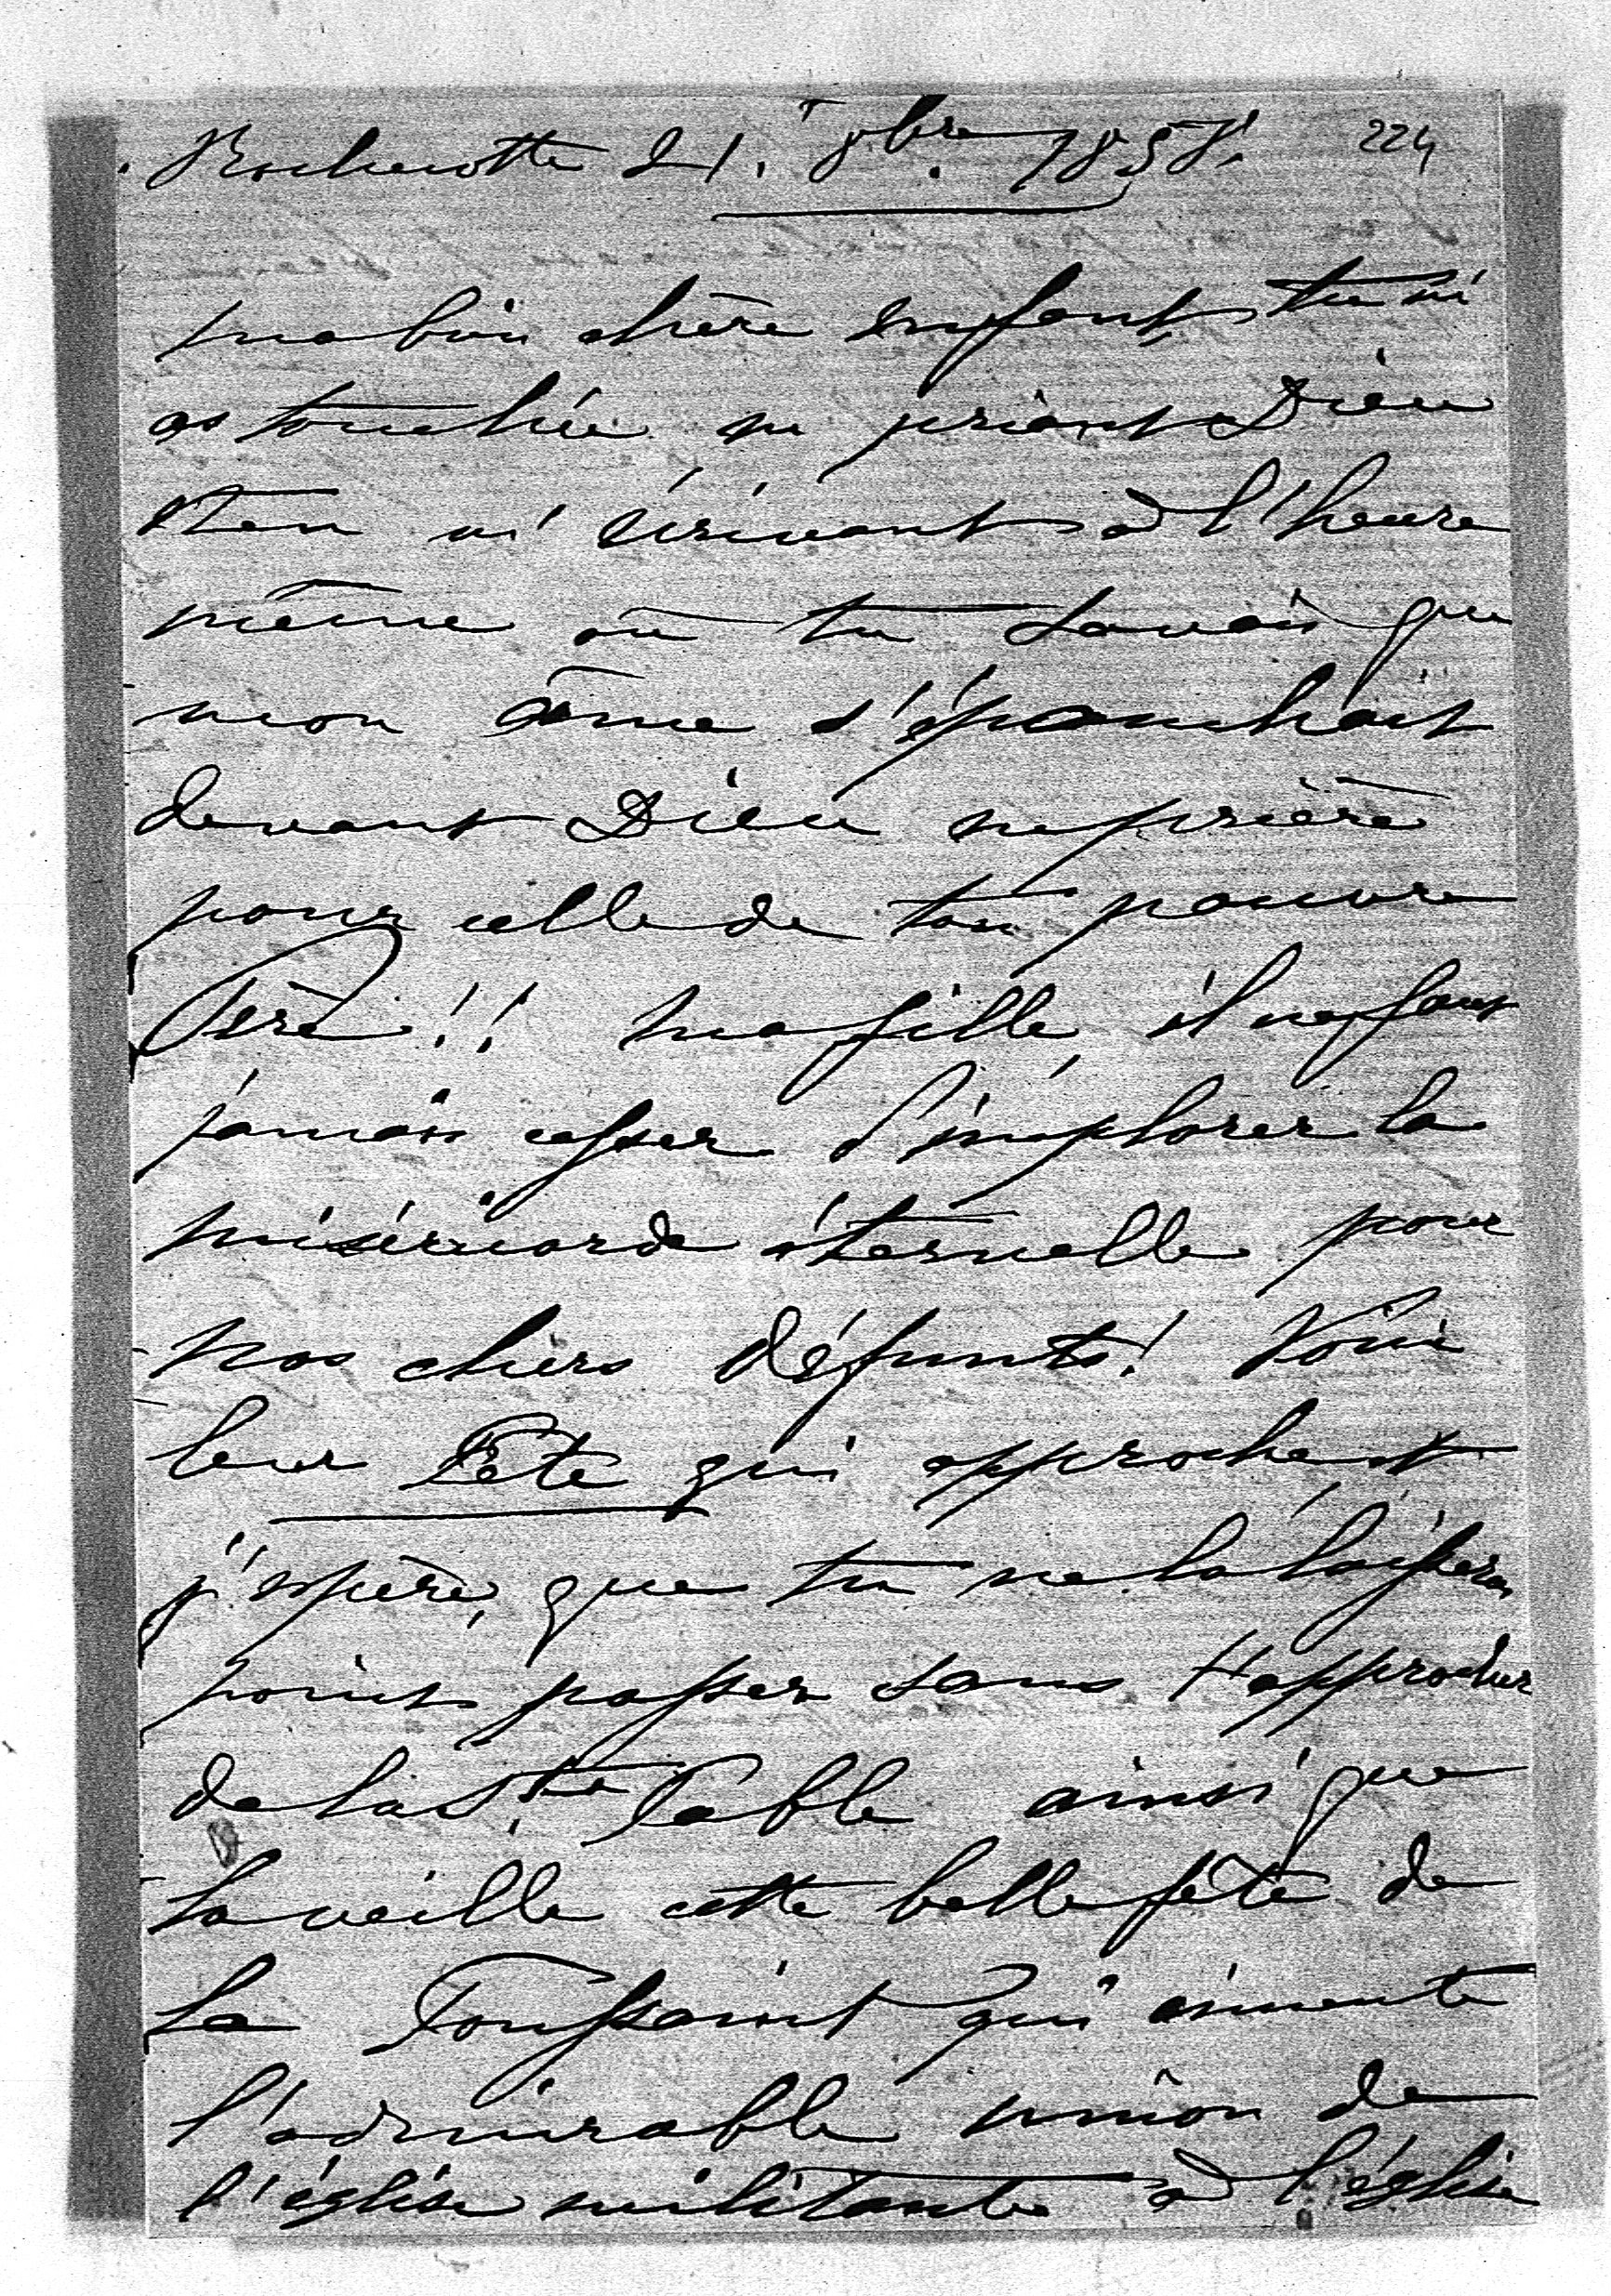 Rochecotte 21. 8bre. 1857. 224
ma bien chère enfant, tu m'
as touchée en priant Dieu
et en m'écrivant à l'heure
même où tu savais que
mon âme s'épanchait
devant Dieu en prière
pour celle de ton pauvre
Père!! Ma fille, il ne faut
jamais cesser d'implorer la
miséricorde éternelle pour
nos chers défunts! Voici
leur Fête qui approche et
j'espère, que tu ne la laisseras
point passer sans t'approcher
de la Ste Table ainsi que
la veille cette belle fête de
la Toussaint qui cimente
l'admirable union de
l'église militante à l'église